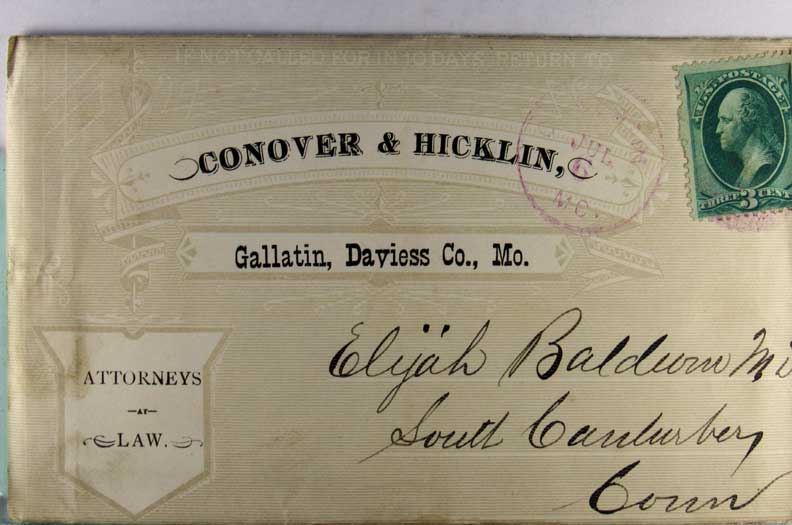 IF NOT CALLED FOR IN 10 DAYS, RETURN TO
CONOVER & HICKLIN,
Gallatin, Daviess Co., Mo.
ATTORNEYS
—AT—
LAW.
JUL
6
MO.
U.S. POSTAGE
THREE 3 CENT
Elijah Baldwin
South Canterbery
Conn